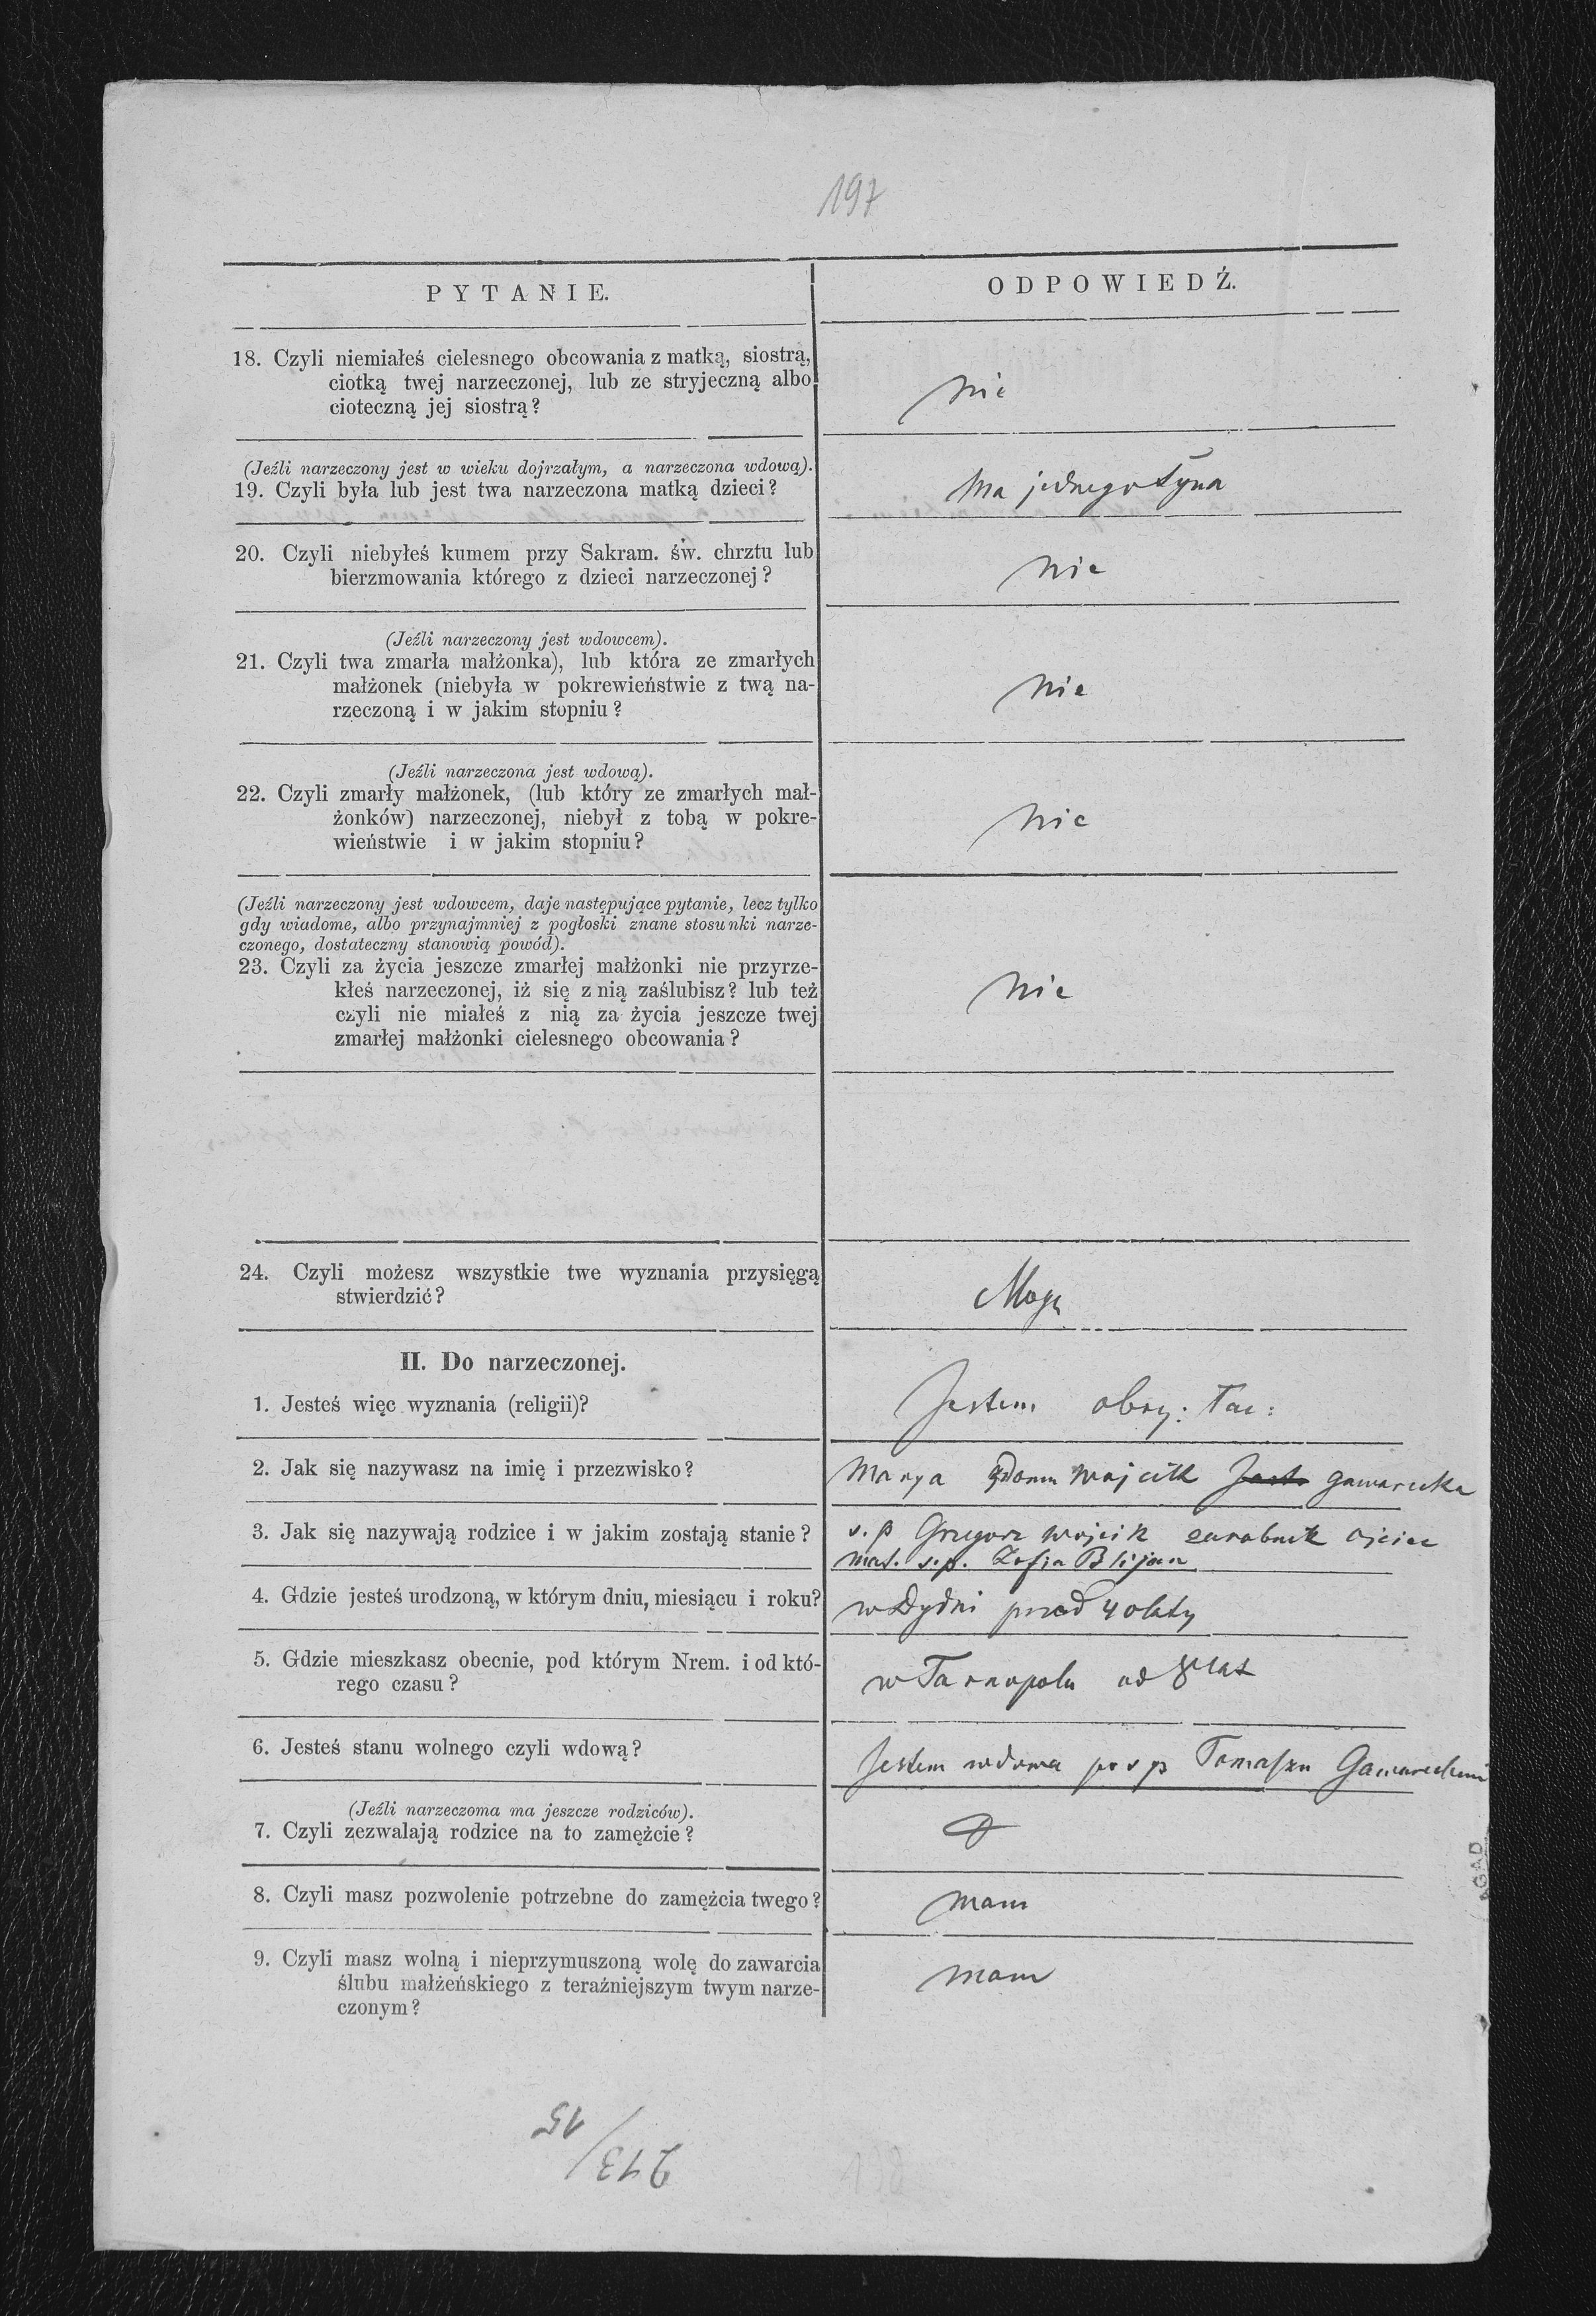 197
PYTANIE.
ODPOWIEDŹ.
18. Czyli niemiałeś cielesnego obcowania z matką, siostrą,
ciotką twej narzeczonej, lub ze stryjeczną albo
cioteczną jej siostrą?
nie
(Jeźli narzeczony jest w wieku dojrzałym, a narzeczona wdową).
19. Czyli była lub jest twa narzeczona matką dzieci?
Ma jednego syna
20. Czyli niebyłeś kumem przy Sakram. św. chrztu lub
bierzmowania którego z dzieci narzeczonej?
nie
(Jeźli narzeczony jest wdowcem).
21. Czyli twa zmarła małżonka), lub która ze zmarłych
małżonek (niebyła w pokrewieństwie z twą na-
rzeczoną i w jakim stopniu?
nie
(Jeźli narzeczona jest wdową).
22. Czyli zmarły małżonek, (lub który ze zmarłych mał-
żonków) narzeczonej, niebył z tobą w pokre-
wieństwie i w jakim stopniu?
nie
(Jeźli narzeczony jest wdowcem, daje następujące pytanie, lecz tylko
gdy wiadome, albo przynajmniej z pogłoski znane stosunki narze-
czonego, dostateczny stanowią powód).
23. Czyli za życia jeszcze zmarłej małżonki nie przyrze-
kłeś narzeczonej, iż się z nią zaślubisz? lub też
czyli nie miałeś z nią za życia jeszcze twej
zmarłej małżonki cielesnego obcowania?
nie
24. Czyli możesz wszystkie twe wyznania przysięgą
stwierdzić?
Mogę
II. Do narzeczonej.
1. Jesteś więc wyznania (religii)?
Jestem obrz: łac:
2. Jak się nazywasz na imię i przezwisko?
Marya z domu Wojcik Gawarecka
3. Jak się nazywają rodzice i w jakim zostają stanie?
s. p Grzegorz Wojcik zarobnik ojciec
mat. s. p. Zofia
4. Gdzie jesteś urodzoną, w którym dniu, miesiącu i roku?
w Dydni przed 40 laty
5. Gdzie mieszkasz obecnie, pod którym Nrem. i od któ-
rego czasu?
w Tarnopolu od 8 lat
6. Jesteś stanu wolnego czyli wdową?
Jestem wdowa po s p Tomaszu Gawareckim
(Jeźli narzeczoma ma jeszcze rodziców).
7. Czyli zezwalają rodzice na to zamężcie?
8. Czyli masz pozwolenie potrzebne do zamężcia twego?
mam
9. Czyli masz wolną i nieprzymuszoną wolę do zawarcia
ślubu małżeńskiego z teraźniejszym twym narze-
czonym?
mam
213/15
AGAD